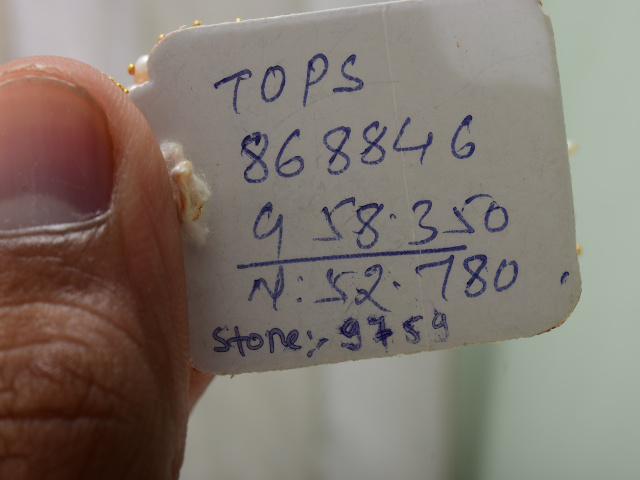 TOPS
868846
G 58.350
N: 52.780
Stone:- 9759